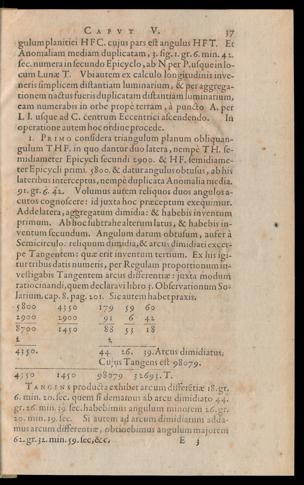 CAPUT V. 37
gulum planitiei HFC. cujus pars est angulus HFT. Et
Anomaliam mediam duplicatam, 3. sig. 1. gr. 6. min. 42.
sec. numera in secundo Epicyclo, ab N per P. usque in lo-
cum Lunæ T. Ubi autem ex calculo longitudinis inve-
neris simplicem distantiam luminarium, & per aggrega-
tionem nactus fueris duplicatam distantiam luminarium,
eam numerabis in orbe propè terram, à puncto A. per
L I. usque ad C. centrum Eccentrici ascendendo. In
operatione autem hoc ordine procede.
1. PRIMO considera triangulum planum obliquan-
gulum THF. in quo dantur duo latera, nempè TH. se-
midiameter Epicycli secundi 2900. & HF. semidiame-
ter Epicycli primi. 5800. & datur angulus obtusus, ab his
lateribus interceptus, nempè duplicata Anomalia media.
91. gr. 6. 42. Volumus autem reliquos duos angulos a-
cutos cognoscere: id juxta hoc præceptum exequimur.
Adde latera, aggregatum dimidia: & habebis inventum
primum. Ab hoc subtrahe alterum latus, & habebis in-
ventum secundum. Angulum datum obtusum, aufer à
Semicirculo: reliquum dimidia, & arcus dimidiati excer-
pe Tangentem: quæ erit inventum tertium. Ex his igi-
tur tribus datis numeris, per Regulam proportionum in-
vestigabis Tangentem arcus differentiæ: juxta modum
ratiocinandi, quem declaravi libro 3. Observationum So-
larium. cap. 8. pag. 201. Sic autem habet praxis.
5800 4350 179 59 60
2900 2900 91 6 42
8700 1450 88 53 18
2 2
4350. 44. 26. 39. Arcus dimidiatus.
Cujus Tangens est 98079.
4350 1450 98079 32693. T.
TANGENS producta exhibet arcum differentiæ 18. gr.
6. min. 20. sec. quem si demamus ab arcu dimidiato 44.
gr. 26. min. 39. sec. habebimus angulum minorem 26. gr.
20. min. 19. sec. Si autem ad arcum dimidiatum adda-
mus arcum differentiæ, obtinebimus angulum majorem
62. gr. 32. min. 59. sec. &c. E 3